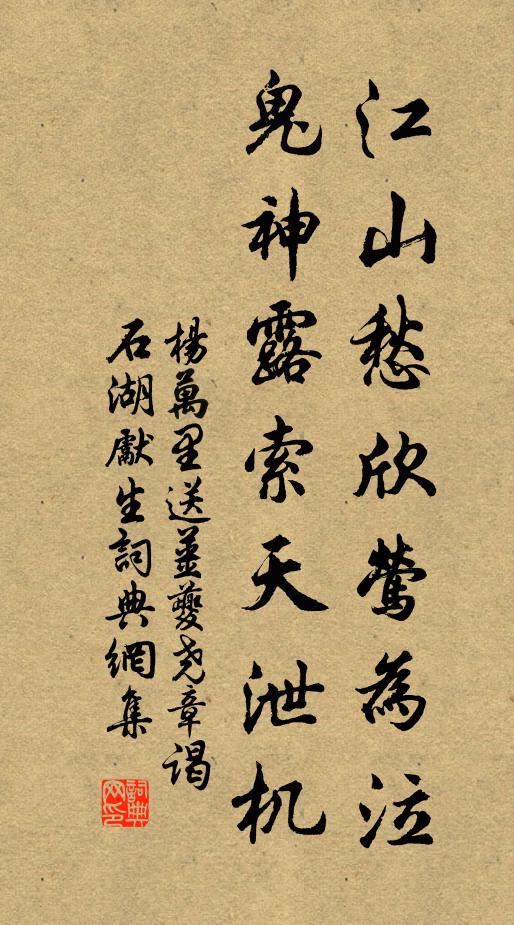 江山愁欣鶯為泣
鬼神露索天泄机
楊萬里送薑夔尧章謁
石湖獻生詞典網集
詞典网印